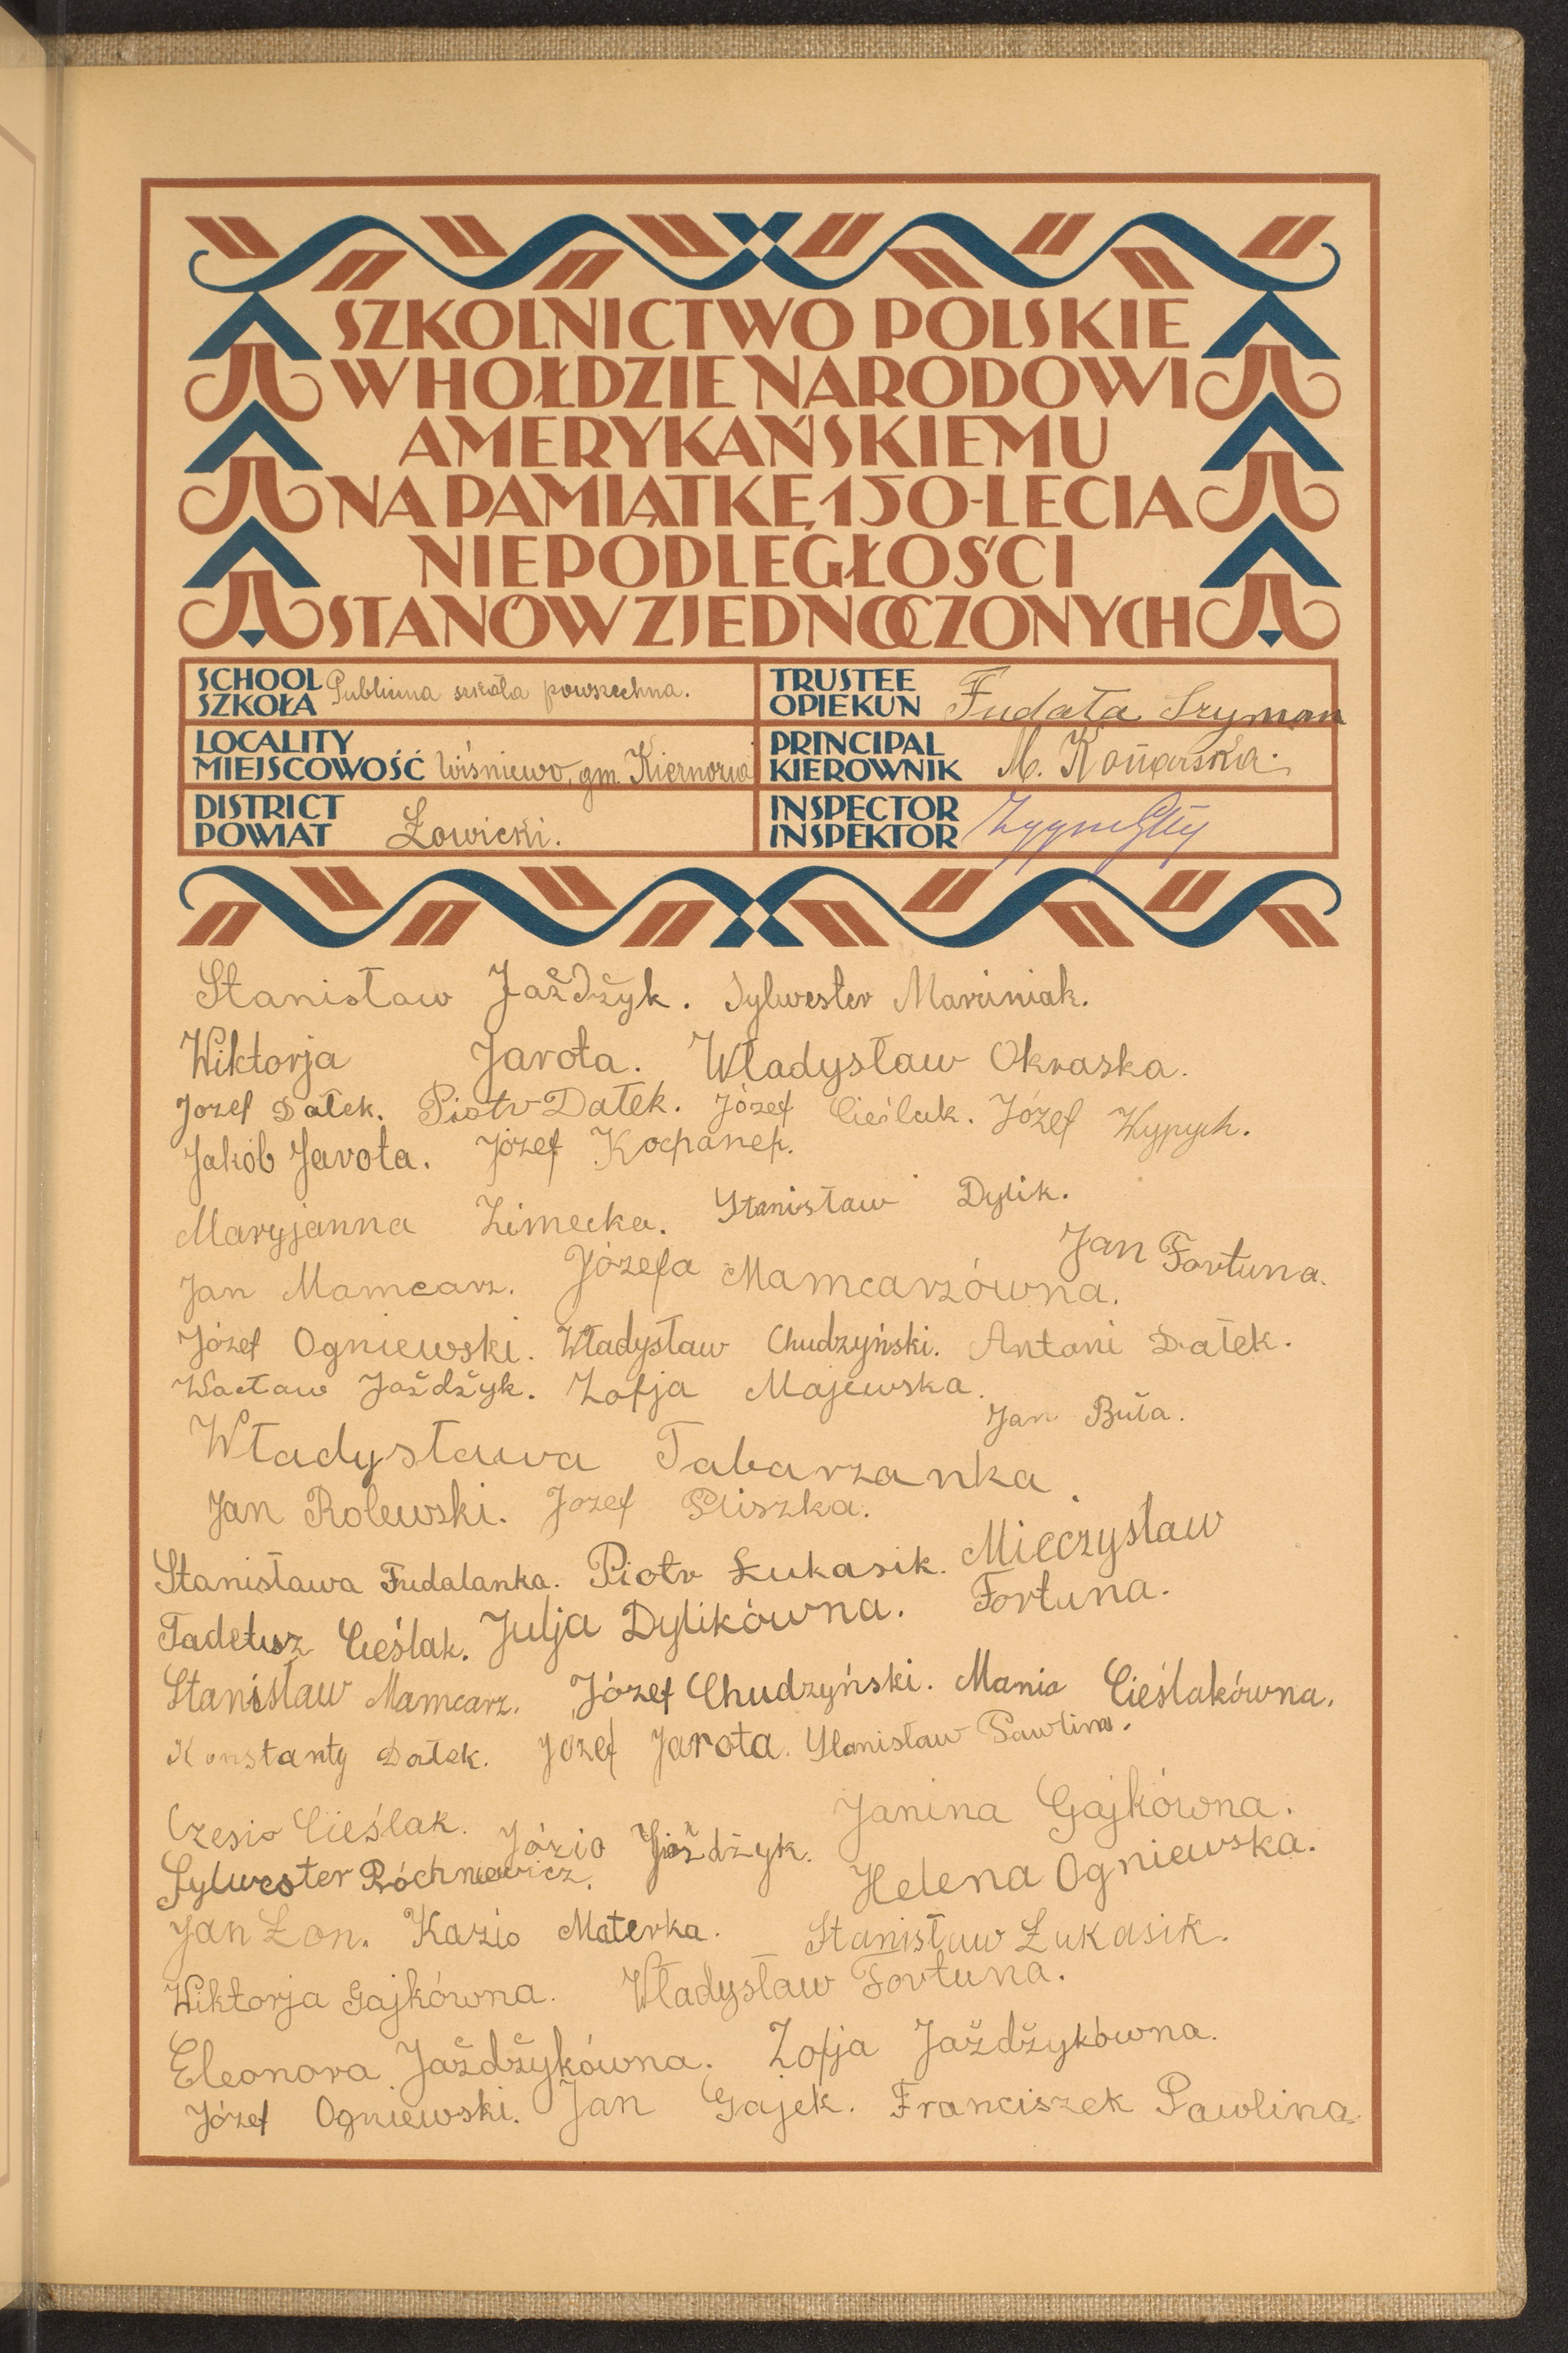 SZKOLNICTWO POLSKIE
W HOŁDZIE NARODOWI
AMERYKAŃSKIEMU
NA PAMIĄTKĘ 150-LECIA
NIEPODLEGŁOŚCI
STANÓW ZJEDNOCZONYCH
SCHOOL
SZKOŁA Publiczna szkoła powszechna.
TRUSTEE
OPIEKUN Fudała Szymon
LOCALITY
MIEJSCOWOŚĆ Wiśniewo, gm. Kiernozia
PRINCIPAL
KIEROWNIK M. Konarska.
DISTRICT
POWIAT Łowicki.
INSPECTOR
INSPEKTOR
Stanisław Jażdżyk. Sylwester Marciniak.
Wiktorja Jarota. Władysław Okraska.
Jozef Dałek. Piotr Dałek. Józef Cieślak. Józef Wypych.
Jakób Jarota. Józef Kochanek.
Maryjanna Zimecka. Stanisław Dylik.
Jan Mamcarz. Józefa Mamcarzówna. Jan Fortuna.
Józef Ogniewski. Władysław Chudzyński. Antoni Dałek.
Wacław Jażdżyk. Zofja Majewska.
Jan Buła.
Władysława Tabarzanka.
Jan Rolewski. Jozef Pliszka.
Stanisława Fudalanka. Piotr Łukasik. Mieczysław
Fortuna.
Tadeusz Cieślak. Julja Dylikówna.
Stanisław Mamcarz. Józef Chudzyński. Mania Cieślakówna.
Konstanty Dałek. Józef Jarota. Stanisław Pawlina.
Czesio Cieślak. Józio Jażdżyk. Janina Gajkówna.
Sylwester Próchniewicz. Helena Ogniewska.
Jan Łon. Kazio Materka. Stanisław Łukasik.
Wiktorja Gajkówna. Władysław Fortuna.
Eleonora Jażdżykówna. Zofja Jażdżykówna.
Józef Ogniewski. Jan Gajek. Franciszek Pawlina